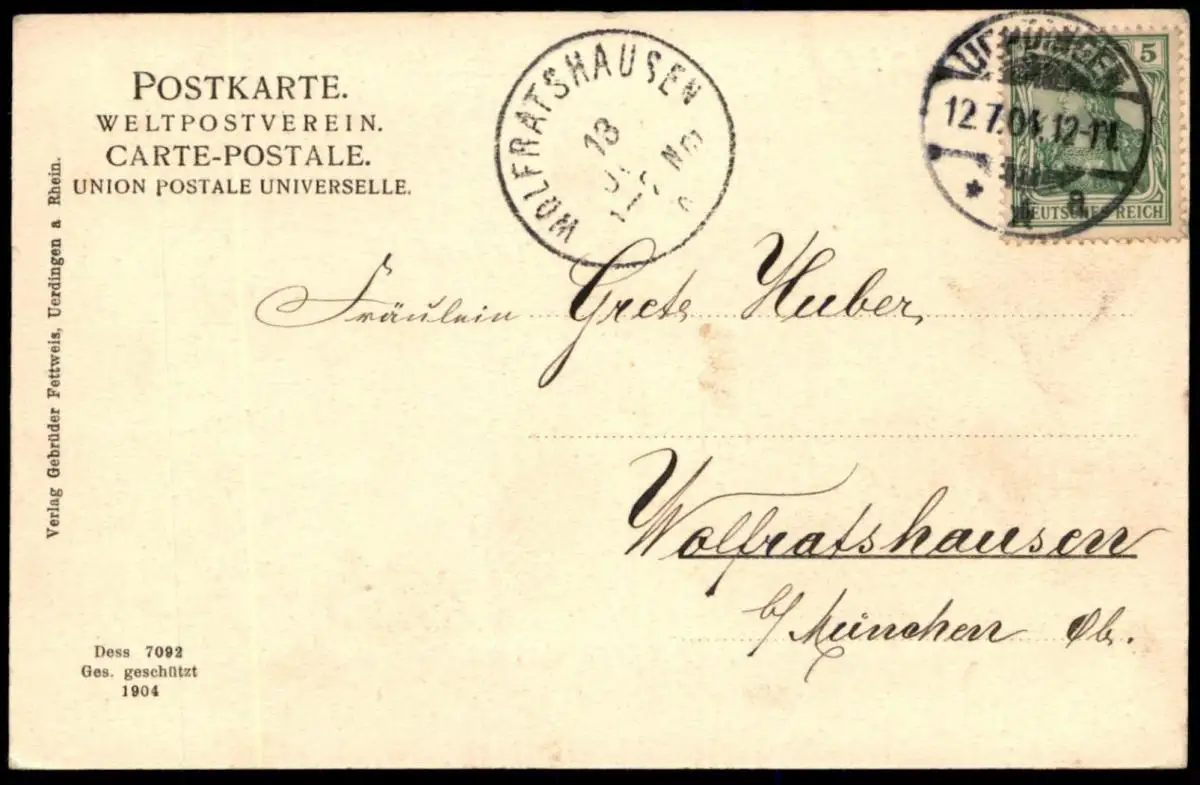 POSTKARTE.
WELTPOSTVEREIN.
CARTE-POSTALE.
UNION POSTALE UNIVERSELLE.
WOLFRATSHAUSEN
13
UERDINGEN
12.7.04. 12-1N.
* a
5
DEUTSCHES REICH
Fräulein Grete Huber,
Wolfratshausen
b/ München Ob.
Verlag Gebrüder Fettweis, Uerdingen a Rhein.
Dess 7092
Ges. geschützt
1904